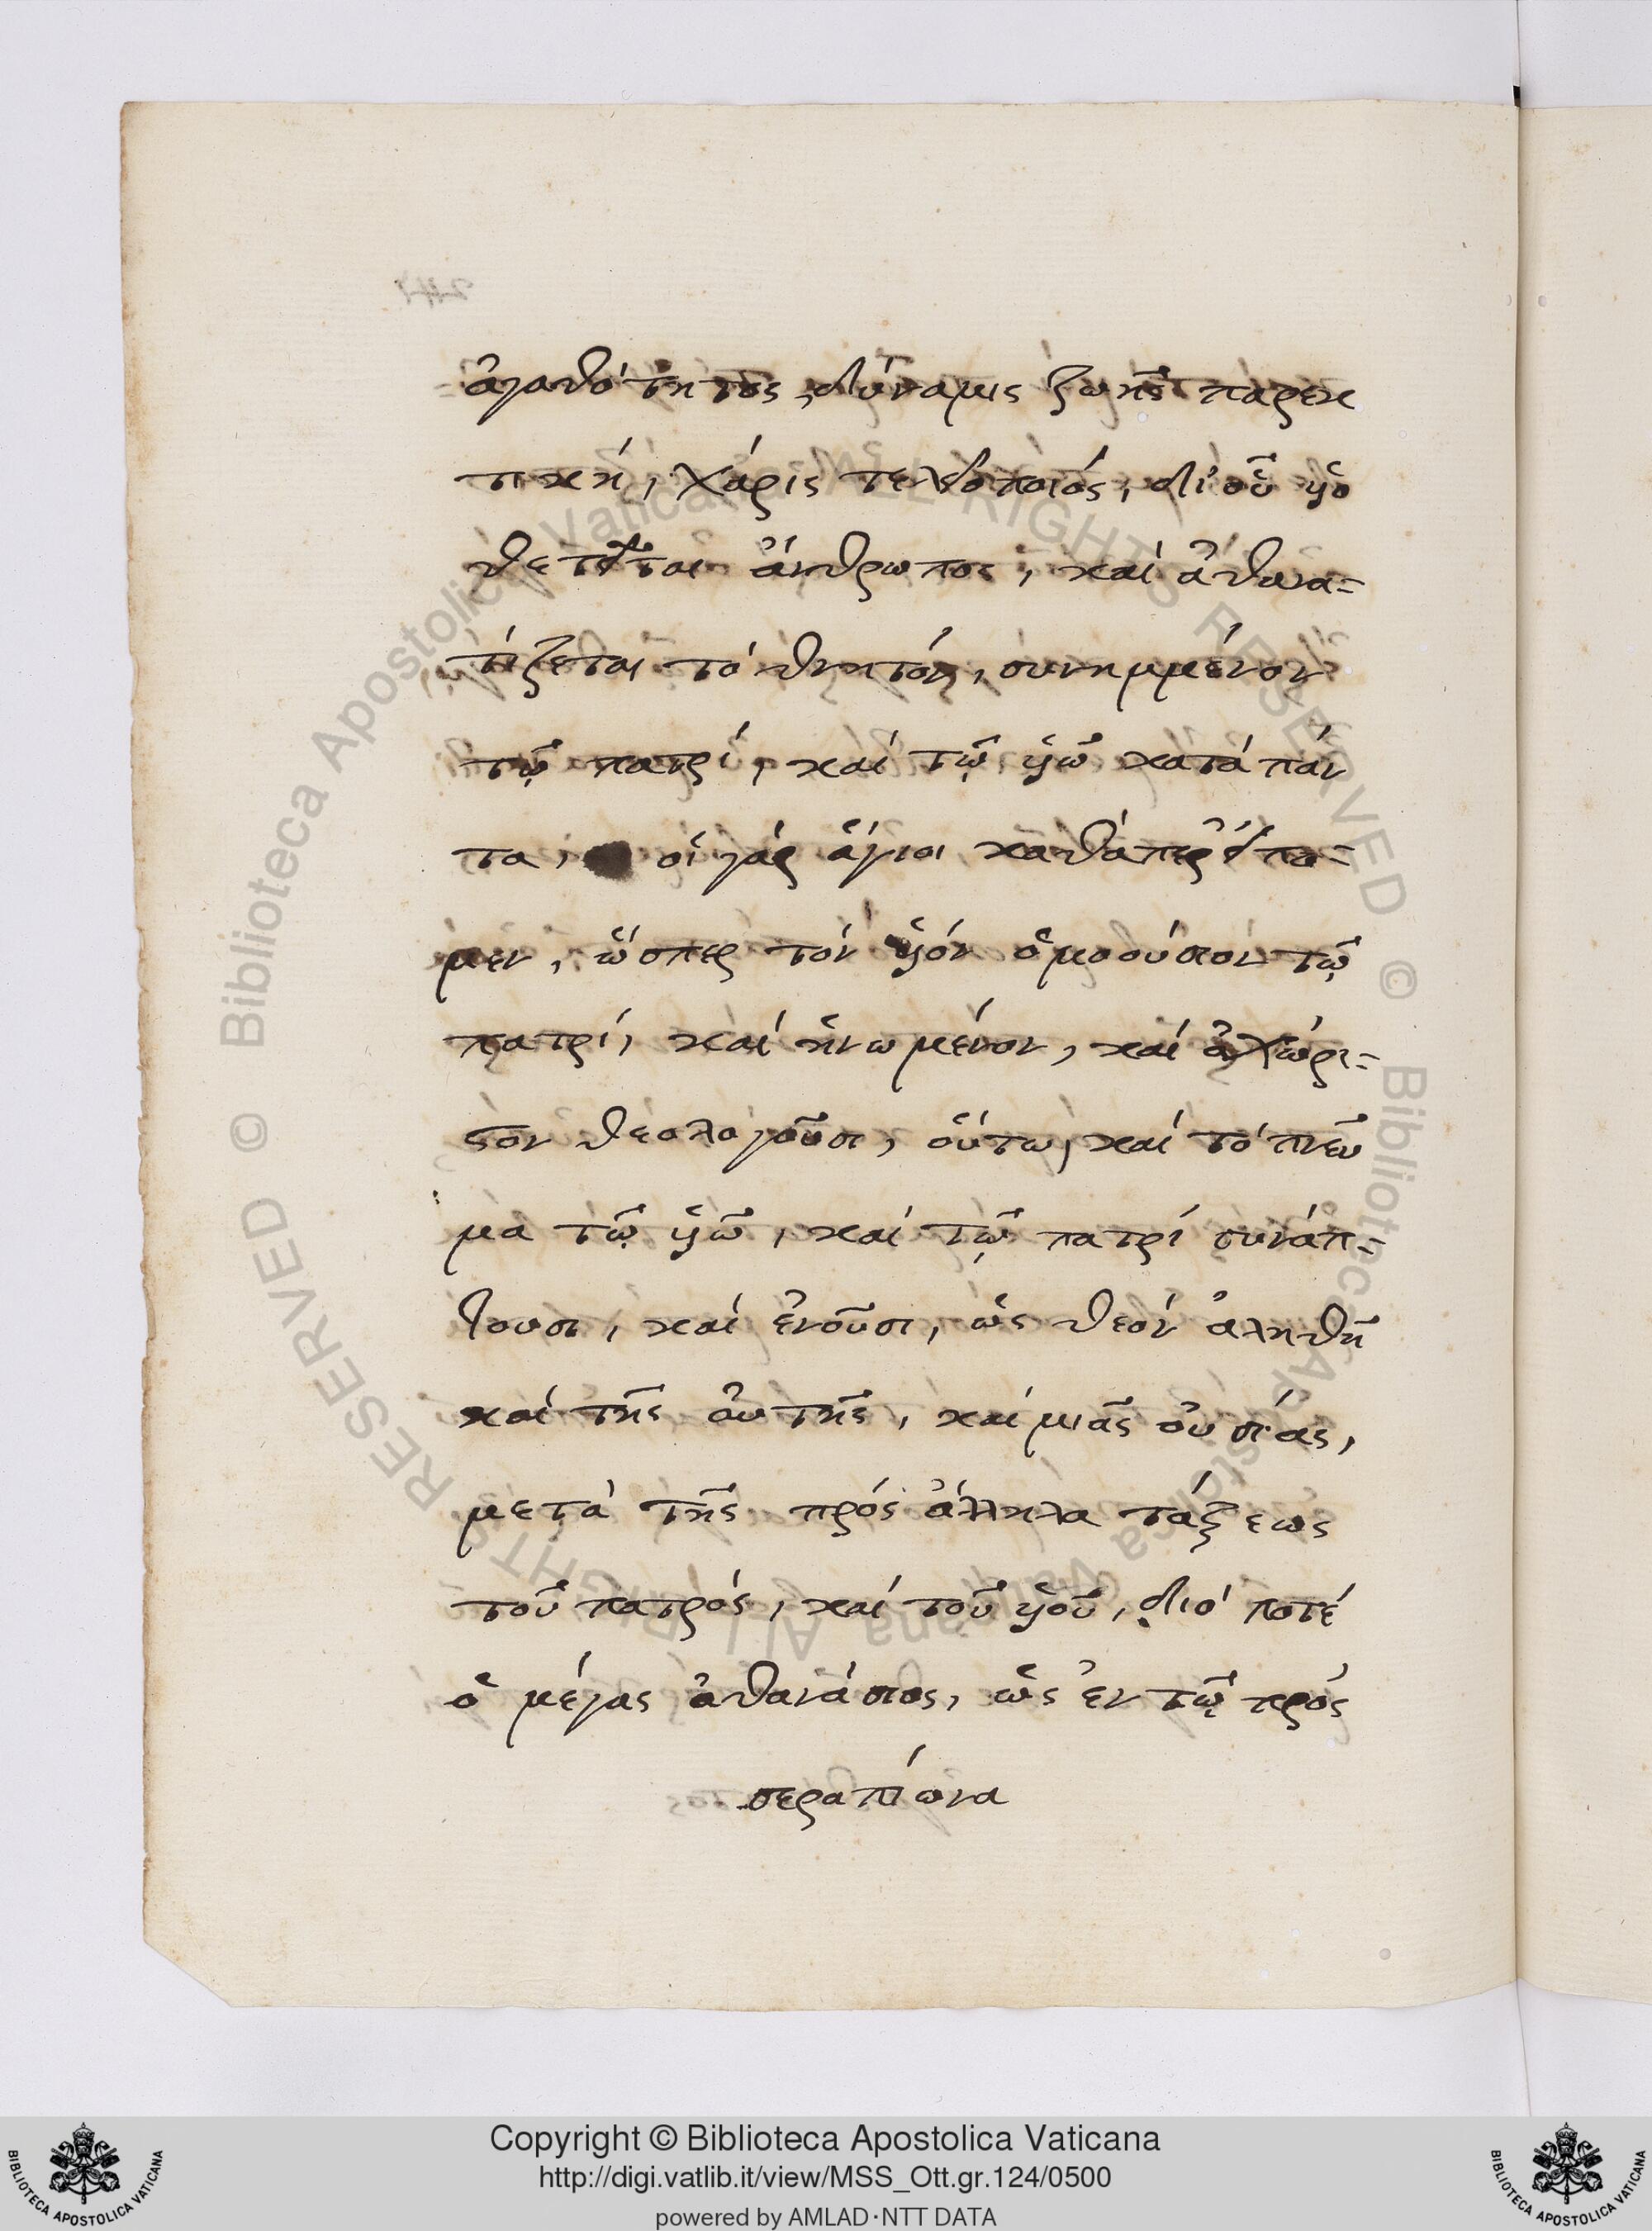 ἀγαθότητος, δύναμις ζωῆς παρεκ
τική, χάρις τελειοποιός, δι' οὗ ὑιο
θετεῖται ἄνθρωπος, καί ἀθανα=
τίζεται τό θνητόν, συνημμένον
τῷ πατρί, καί τῷ ὑιῷ κατά πάν
τα, οἱ γάρ ἅγιοι καθάπερ εἴπο=
μεν, ὥσπερ τόν ὑιόν ὁμοούσιον τῷ
πατρί, καί ἡνωμένον, καί ἀχώρι=
στον θεολογοῦσι, οὕτω, καί τό πνεῦ
μα τῷ ὑιῷ, καί τῷ πατρί συνάπ=
τουσι, καί ἑνοῦσι, ὡς θεόν ἀληθῆ
καί τῆς αὐτῆς, καί μιᾶς οὐσίας,
μετά τῆς πρός ἄλληλα τάξεως
τοῦ πατρός, καί τοῦ ὑιοῦ, διό ποτέ
ὁ μέγας ἀθανάσιος, ὡς ἐν τῷ πρός
σεραπίωνα
Copyright © Biblioteca Apostolica Vaticana
http://digi.vatlib.it/view/MSS_Ott.gr.124/0500
powered by AMLAD·NTT DATA
BIBLIOTECA APOSTOLICA VATICANA
BIBLIOTECA APOSTOLICA VATICANA
© Biblioteca Apostolica Vaticana ALL RIGHTS RESERVED
© Biblioteca Apostolica Vaticana ALL RIGHTS RESERVED